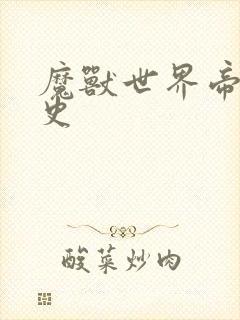 魔獸世界帝
史
酸菜炒肉